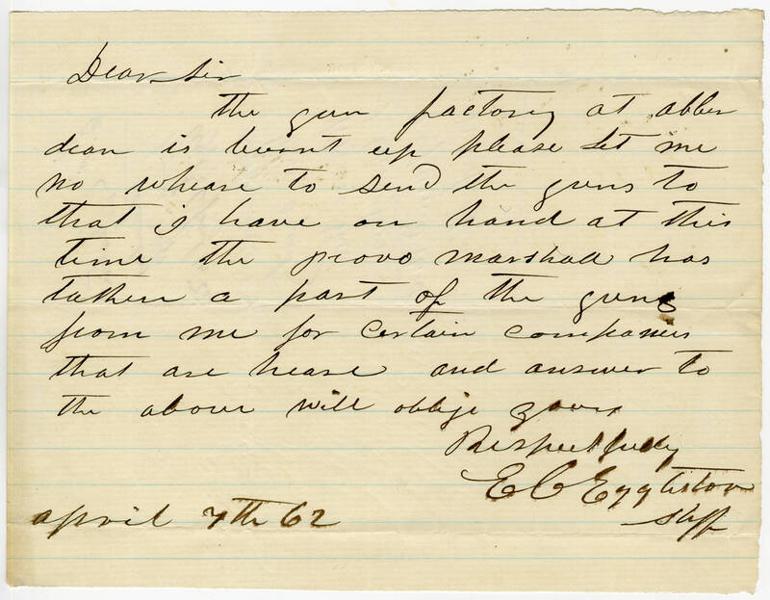 Dear Sir
the gun factory at abber
dean is burnt up please let me
no wheare to send the guns to
that i have on hand at this
time the provo marshall has
taken a part of the guns
from me for certain companies
that are heare and answer to
the above will oblije yours
Respectfully
E C Eggleston
Shff
april 7th 62